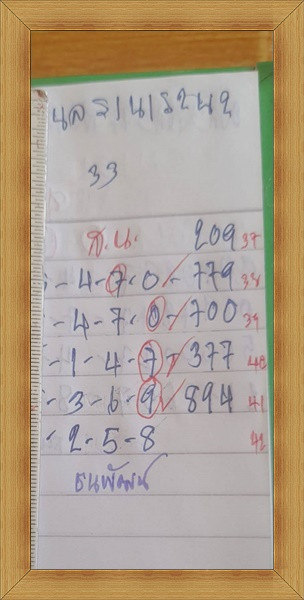 33
ส.น. 209 37
- 4 - 7 - 0 ✓ 779 38
- 4 - 7 - 0 ✓ 700 39
- 1 - 4 - 7 ✓ 377 40
- 3 - 6 - 9 ✓ 894 41
- 2 - 5 - 8 42
ธนพัฒน์